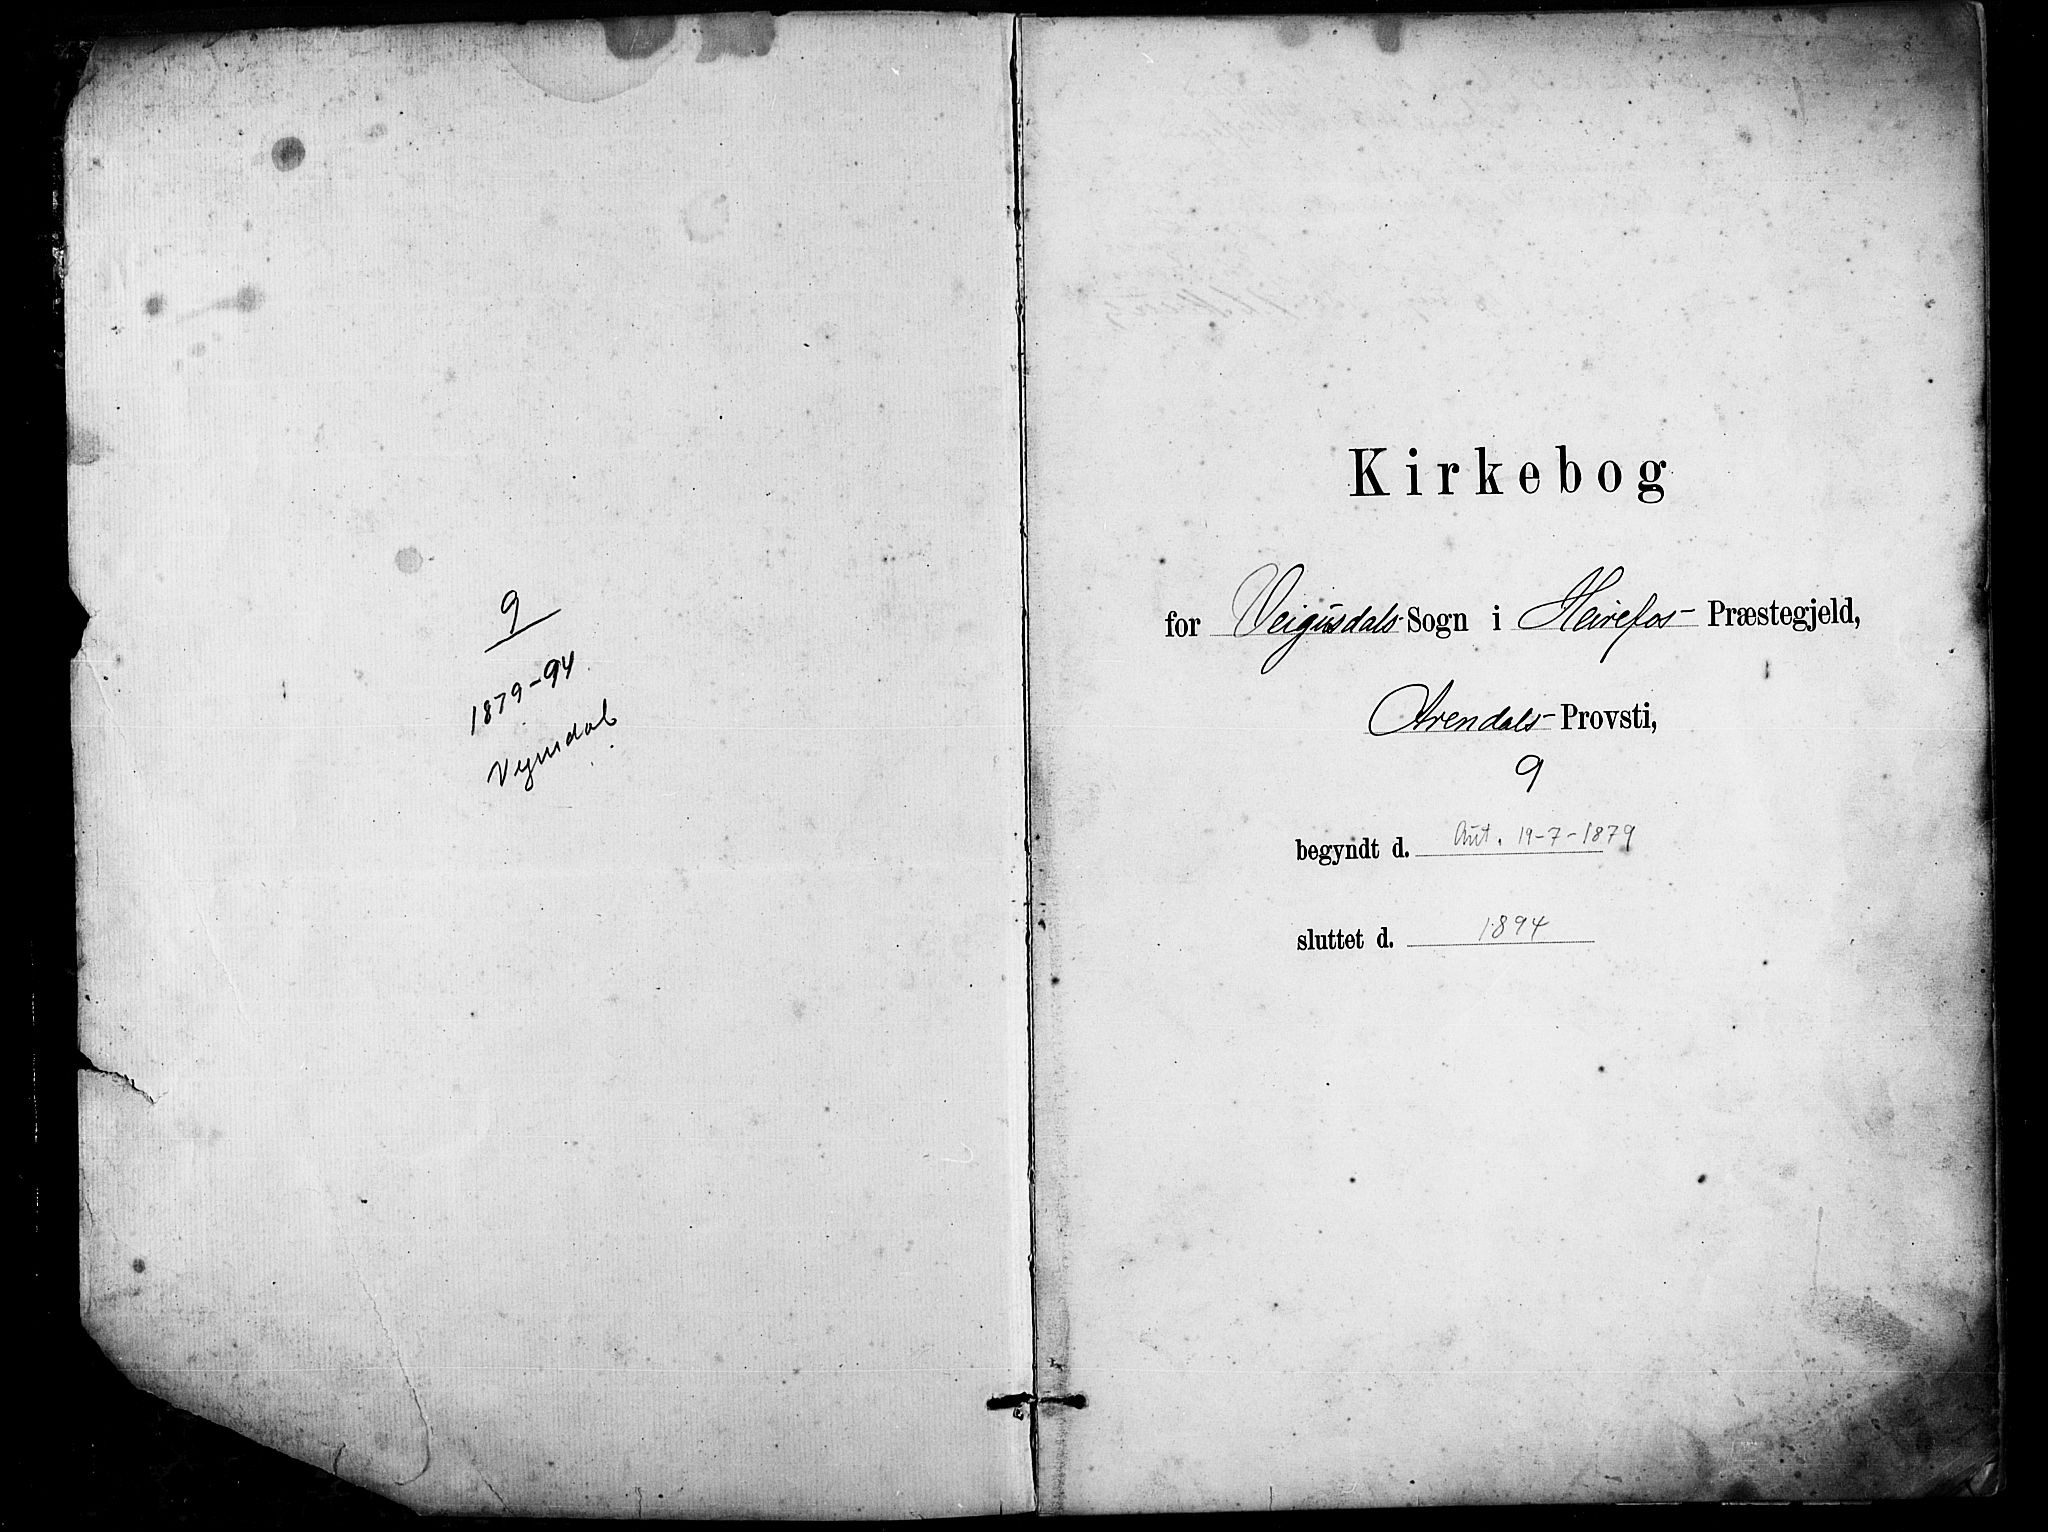 9
1879-94.
Vegusdal
Kirkebog
for Veigusdals-Sogn i Heirefos-Præstegjeld,
Arendals-Provsti,
9
begyndt d. Aut. 19-7-1879
sluttet d. 1894